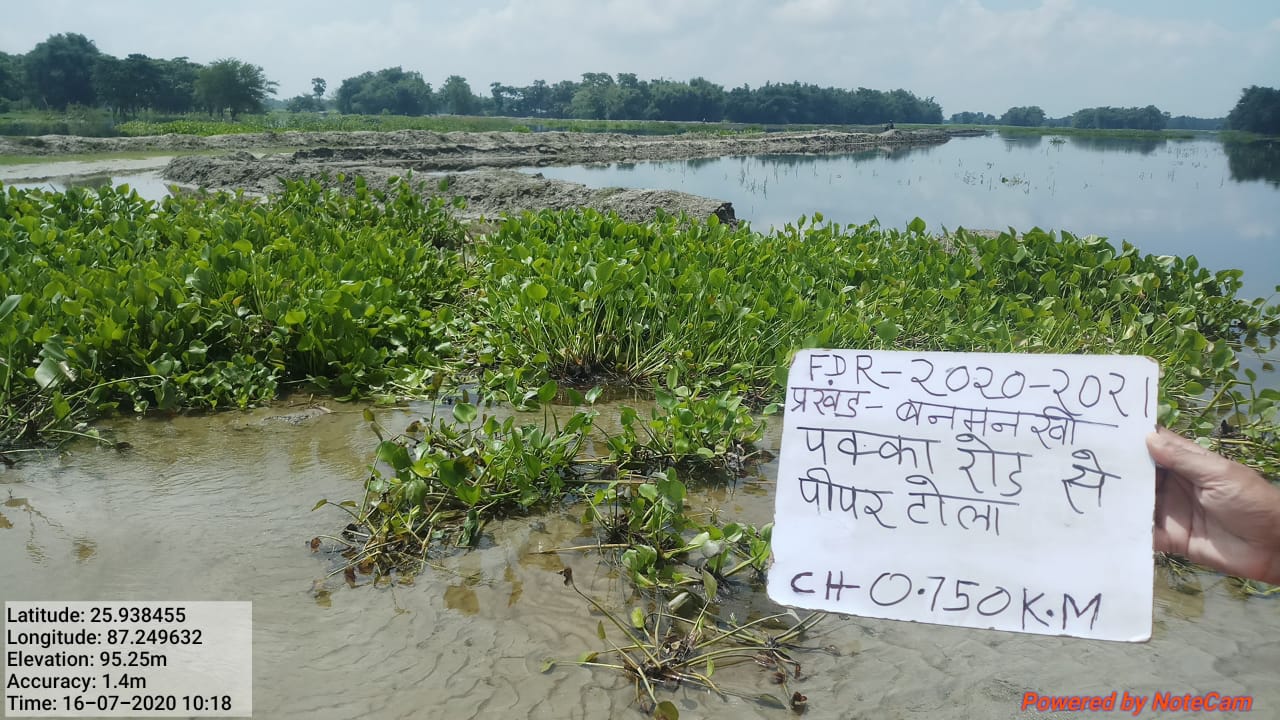 FDR-2020-2021
प्रखंड-बनमनखी
पक्का रोड से
पीपर टोला
CH-0.750K.M
Latitude: 25.938455
Longitude: 87.249632
Elevation: 95.25m
Accuracy: 1.4m
Time: 16-07-2020 10:18
Powered by NoteCam